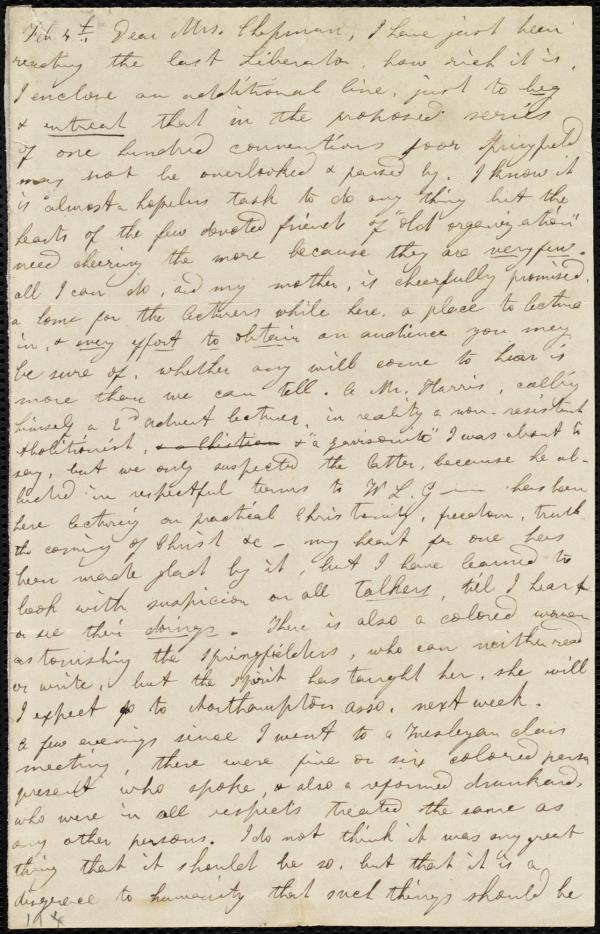 Feb 4th. Dear Mrs. Chapman, I have just been
reading the last Liberator, how rich it is.
I enclose an additional line, just to beg
& entreat that in the proposed series
of one hundred conventions poor Springfield
may not be overlooked & passed by. I know it
is almost a hopeless task to do any thing but the
hearts of the few devoted friends of "old organization"
need cheering the more because they are very few.
all I can do, and my mother, is cheerfully promised,
a home for the lecturers while here, a place to lecture
in, & every effort to obtain an audience you may
be sure of, whether any will come to hear is
more than we can tell. A Mr. Harris, calling
himself a 2nd advent lecturer, in reality a non-resistant
Abolitionist, & a Christian & "a garrisonite" I was about to
say, but we only suspected the latter, because he al-
luded in respectful terms to W L. G— has been
here lecturing on practical Christianity, freedom, truth
the coming of Christ &c — my heart for one has
been made glad by it, but I have learned to
look with suspicion on all talkers, till I hear of
or see their doings. There is also a colored woman
astonishing the Springfielders, who can neither read
or write, but the spirit has taught her. she will
I expect go to Northampton asso. next week.
A few evenings since I went to a Wesleyan class
meeting, there were five or six colored persons
present who spoke, & also a reformed drunkard,
who were in all respects treated the same as
any other persons. I do not think it was any great
thing that it should be so, but that it is a
disgrace to humanity that such things should be